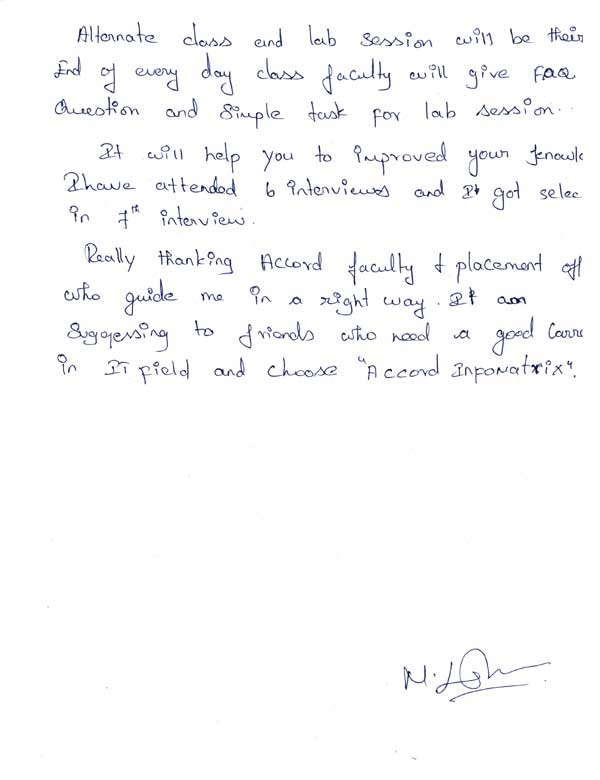 Alternate class and lab session will be their
End of every day class faculty will give FAQ
Question and Simple task for lab session..
It will help you to improved your knowle
I have attended 6 interviews and It got selec
in 7th interview.
Really thanking Accord faculty & placement off
who guide me in a right way. It am
Suggessing to friends who need a good Carre
in IT field and choose "Accord Infomatrix".